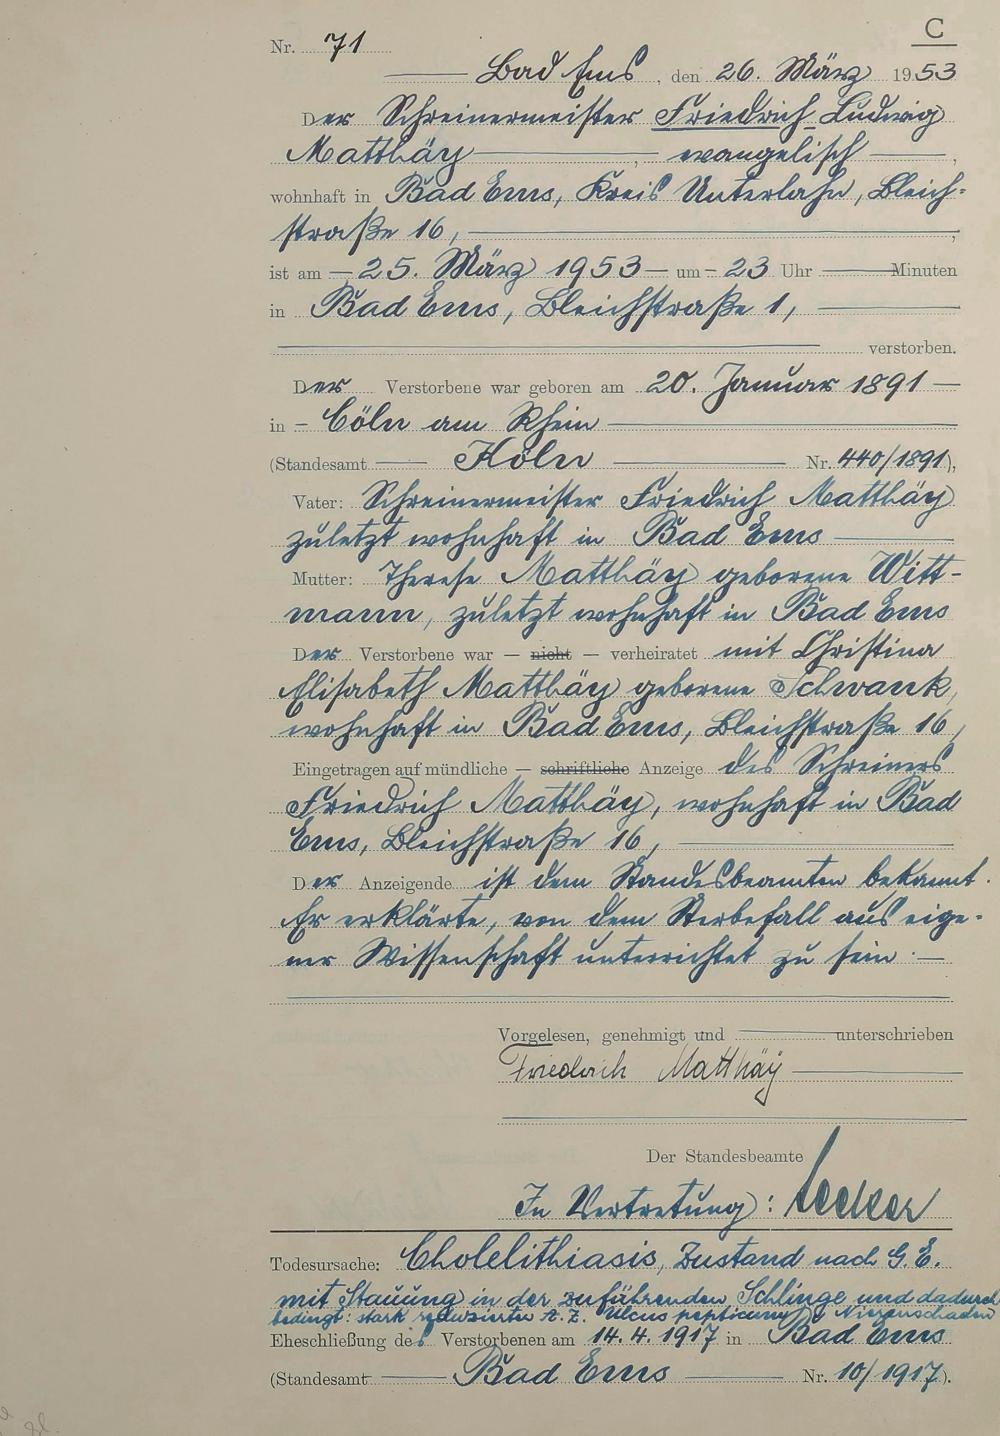 C
Nr. 71
Bad Ems, den 26. März 1953
Der Schreinermeister Friedrich Ludwig
Matthäy, evangelisch,
wohnhaft in Bad Ems, Kreis Unterlahn, Bleich-
straße 16,
ist am 25. März 1953 um 23 Uhr Minuten
in Bad Ems, Bleichstraße 1,
verstorben.
Der Verstorbene war geboren am 20. Januar 1891
in Cöln am Rhein
(Standesamt Köln Nr. 440/1891),
Vater: Schreinermeister Friedrich Matthäy
zuletzt wohnhaft in Bad Ems
Mutter: Therese Matthäy geborene Witt-
mann, zuletzt wohnhaft in Bad Ems
Der Verstorbene war – nicht – verheiratet mit Christina
Elisabeth Matthäy geborene Schwank,
wohnhaft in Bad Ems, Bleichstraße 16,
Eingetragen auf mündliche – schriftliche Anzeige des Schreiners
Friedrich Matthäy, wohnhaft in Bad
Ems, Bleichstraße 16,
Der Anzeigende ist dem Standesbeamten bekannt.
Er erklärte, von dem Sterbefall aus eige-
ner Wissenschaft unterrichtet zu sein.
Vorgelesen, genehmigt und unterschrieben
Friedrich Matthäy
Der Standesbeamte
In Vertretung:
Todesursache: Cholelithiasis, Zustand nach G.E.
mit Stauung in der zuführenden Schlinge und dadurch
bedingt: stark reduzierter A.Z. Ulcus pepticum Nierenschaden
Eheschließung des Verstorbenen am 14.4.1917 in Bad Ems
(Standesamt Bad Ems Nr. 10/1917).